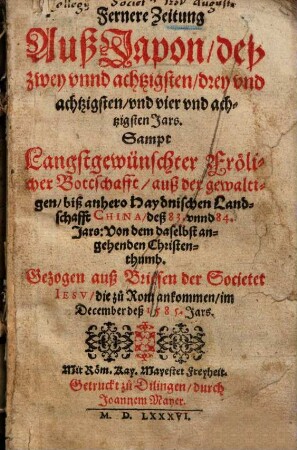 Collegij Societ. IESV Augustæ
Fernere Zeitung
Auß Japon/ deß
zwey vnnd achtzigsten/ drey vnd
achtzigsten/ vnd vier vnd ach-
tzigsten Jars.
Sampt
Langstgewünschter Fröli-
cher Bottschafft/ auß der gewalti-
gen/ biß anhero Haydnischen Land-
schafft CHINA/ deß 83. vnnd 84.
Jars: Von dem daselbst an-
gehenden Christen-
thumb.
Gezogen auß Brieffen der Societet
IESV/ die zů Rom ankommen/ im
December deß 1585. Jars.
Mit Röm. Kay. Mayestet Freyheit.
Getruckt zů Dilingen/ durch
Joannem Mayer.
M. D. LXXXVI.